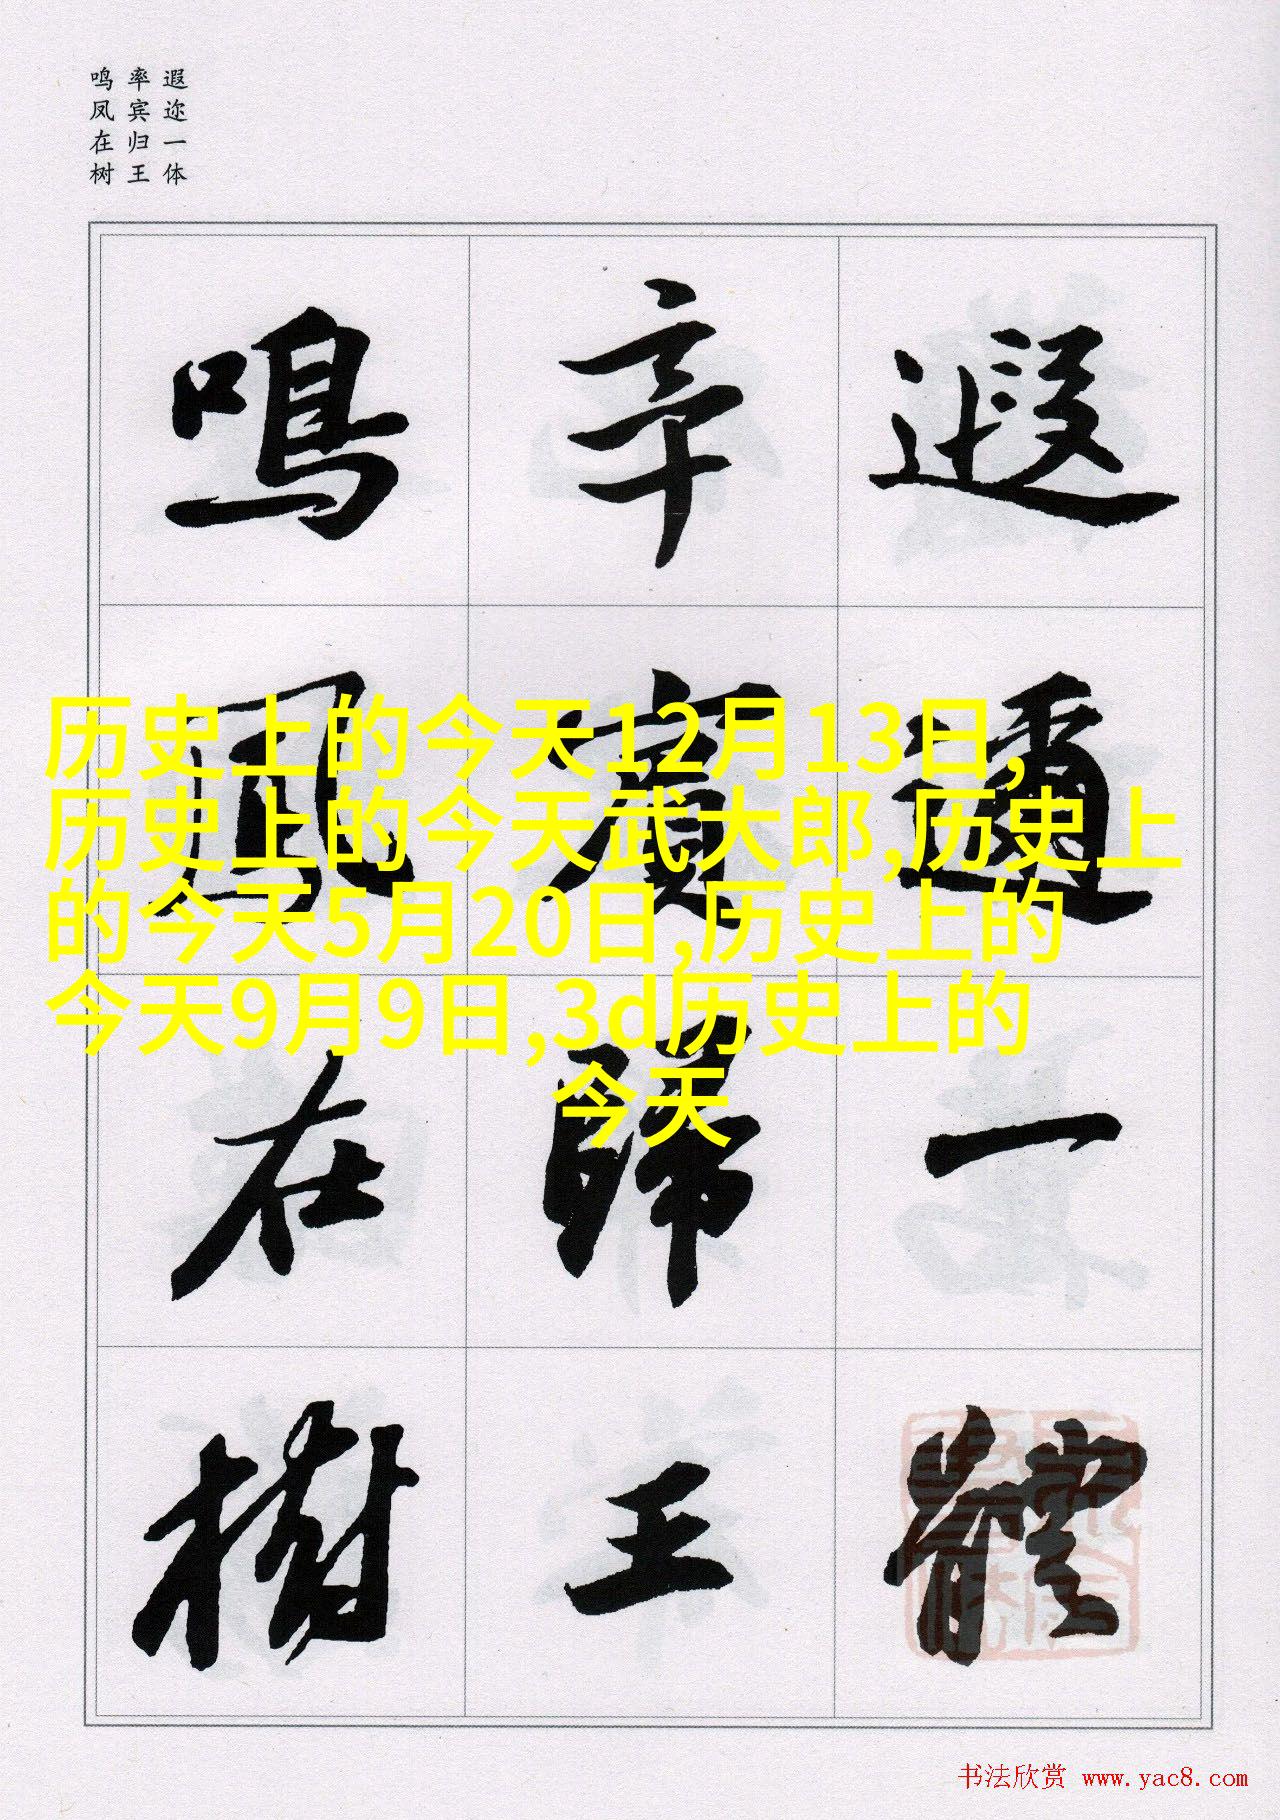 遐迩一体
率宾归王
鸣凤在树
遐邇一體
率賓歸王
鳴鳳在樹
历史上的今天12月13日,
历史上的今天武大郎,历史上
的今天5月20日,历史上的
今天9月9日,3d历史上的
今天
书法欣赏 www.yac8.com